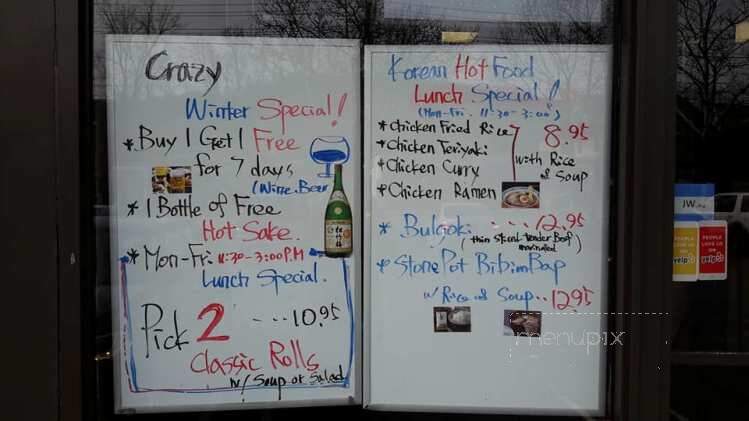 Crazy
Winter Special!
* Buy 1 Get 1 Free
for 7 days
(Wine. Beer
* 1 Bottle of Free
Hot Sake.
* Mon-Fri. 11:30-3:00 P.M
Lunch Special.
Pick 2 --- 10.95
Classic Rolls
w/ Soup or Salad
Korean Hot Food
Lunch Special!
(Mon-Fri. 11:30-3:00)
* Chicken Fried Rice 8.95
* Chicken Teriyaki
* Chicken Curry
with Rice & Soup
* Chicken Ramen
* Bulgoki --- 12.95
(thin sliced tender Beef)
marinated
* Stone Pot BibimBap
w/ Rice and Soup.. 12.95
JW
PEOPLE LOVE US ON yelp
PEOPLE LOVE US ON yelp
menupix